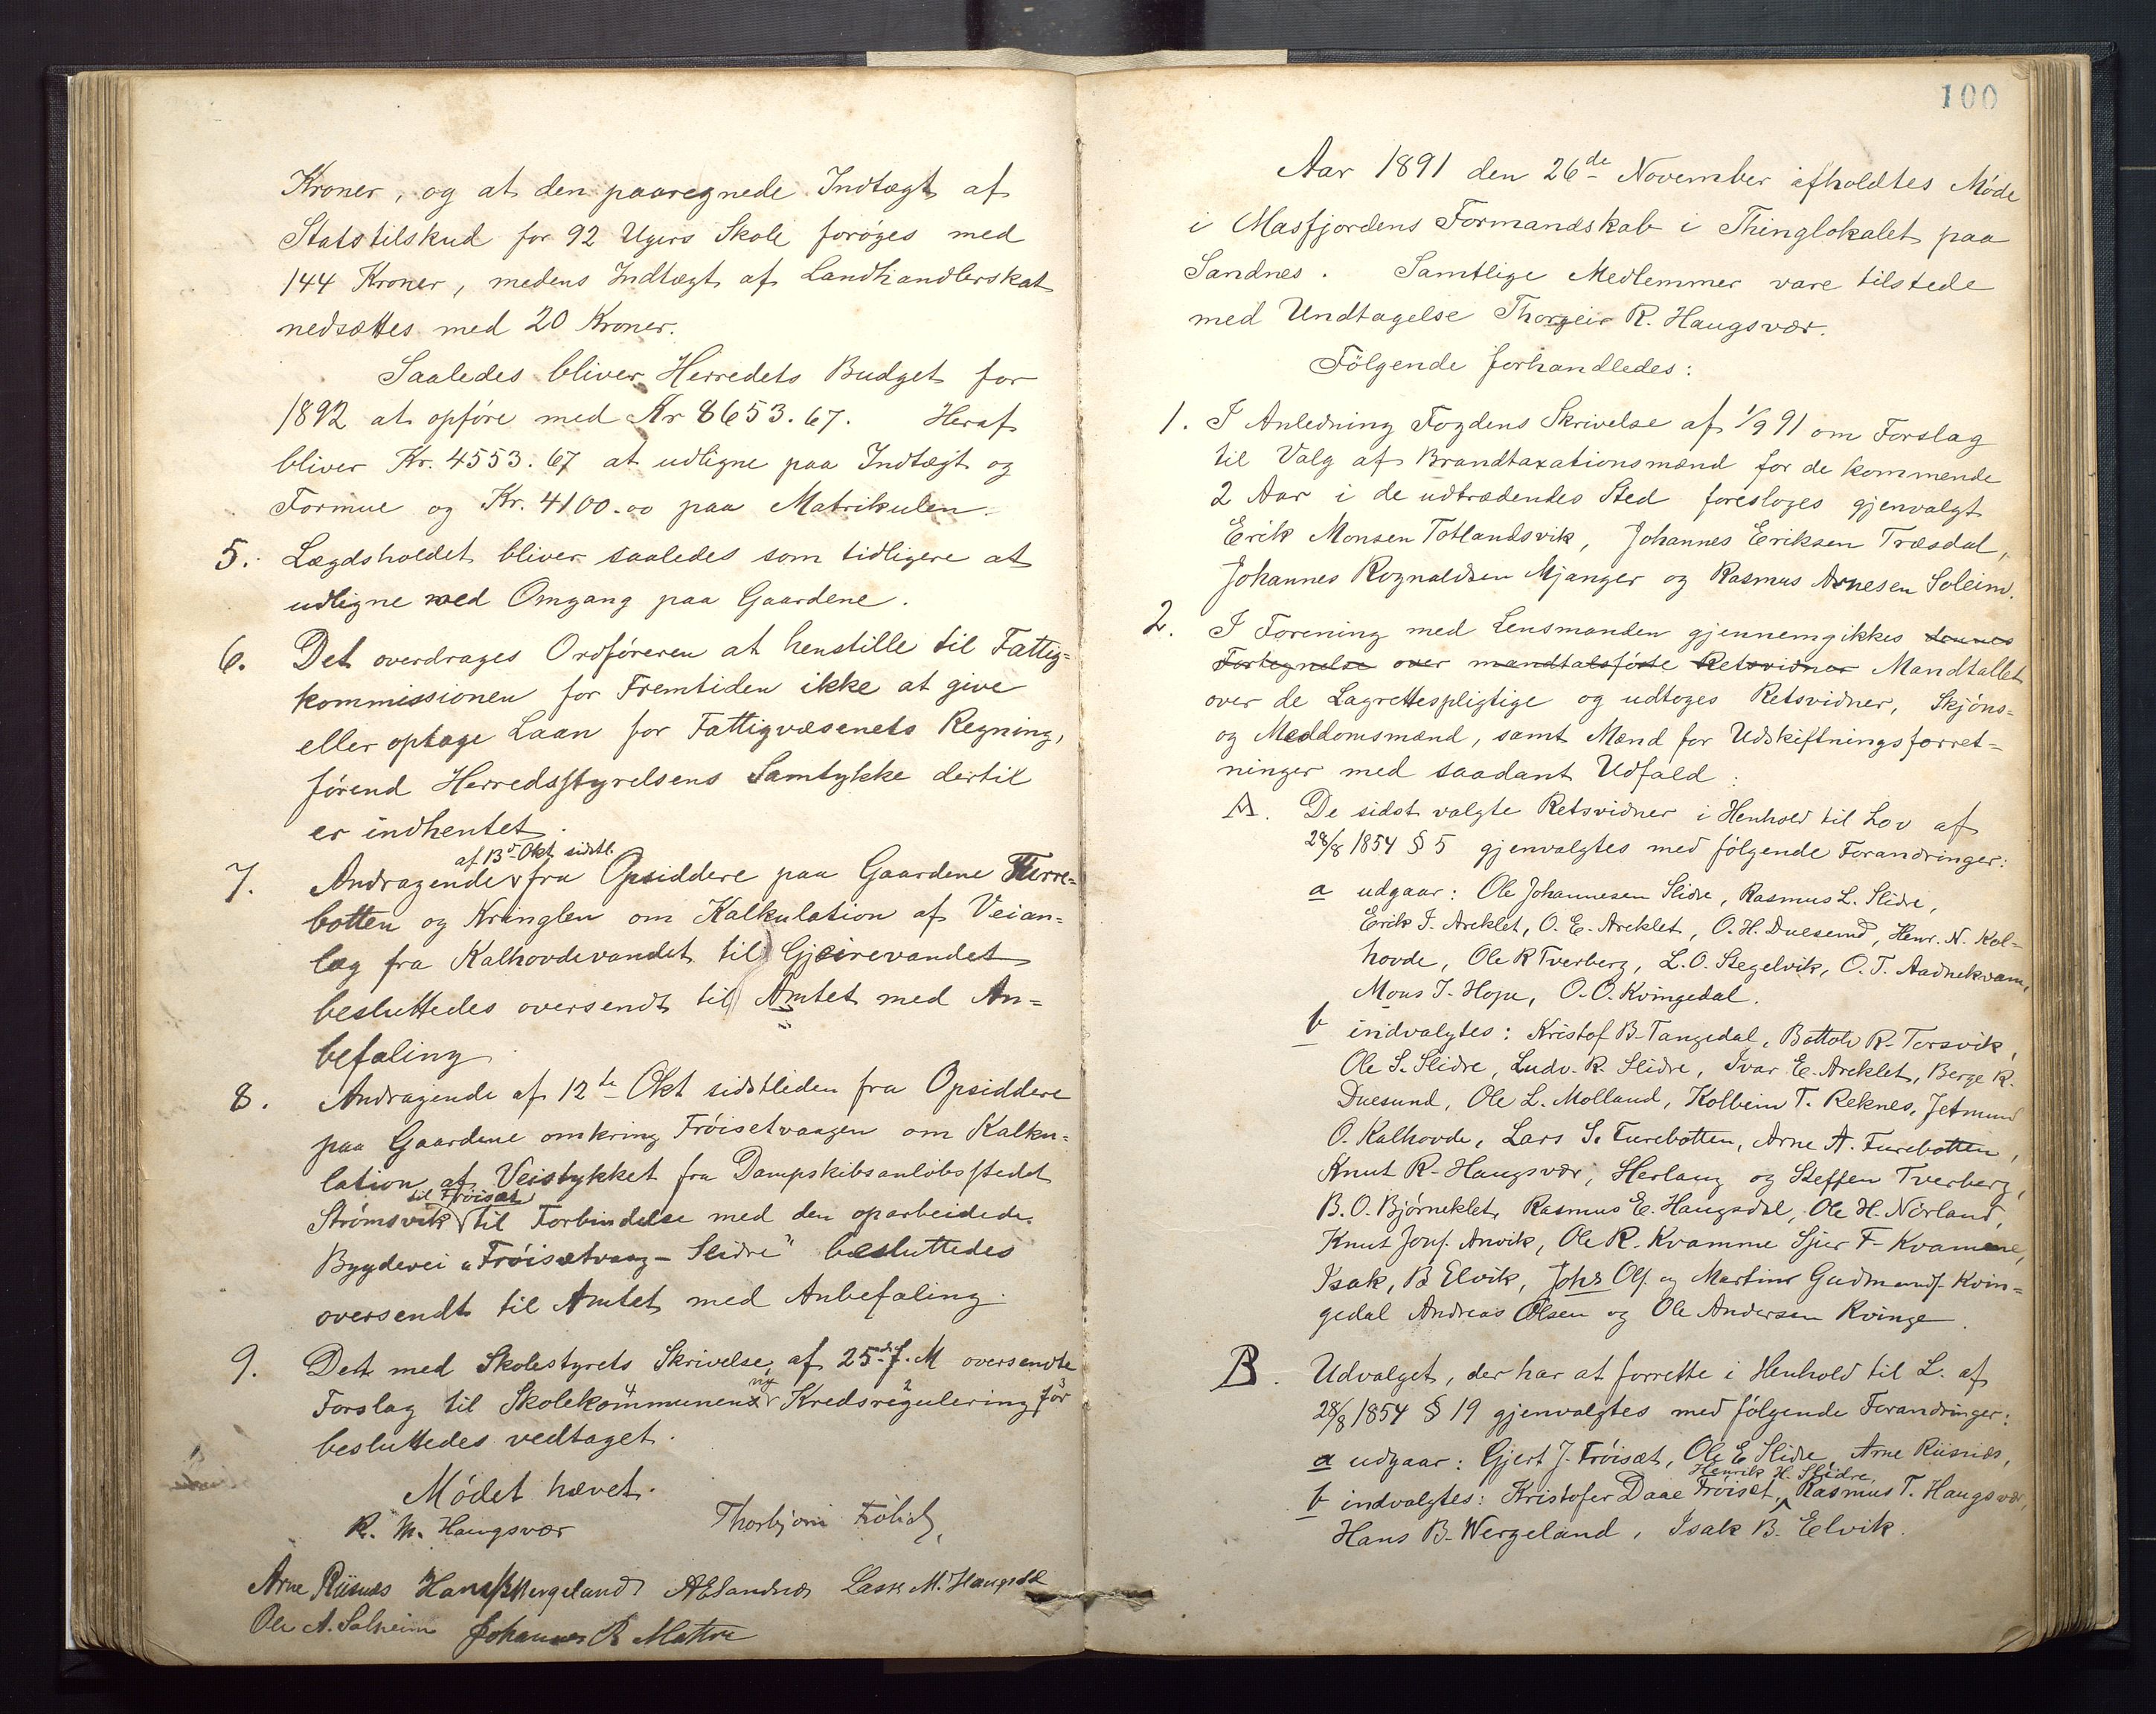 Kroner, og at den paaregnede Indtægt af
Statstilskud for 92 Ugers Skole forøges med
144 Kroner, medens Indtægt af Landhandlerskat
nedsættes med 20 Kroner.
Saaledes bliver Herredets Budget for
1892 at opføre med Kr 8653.67. Heraf
bliver Kr. 4553.67 at udligne paa Indtægt og
Formue og Kr. 4100.00 paa Matrikulen.
5. Lægdsholdet bliver saaledes som tidligere at
udligne med Omgang paa Gaardene.
6. Det overdrages Ordføreren at henstille til Fattig=
kommissionen for Fremtiden ikke at give
eller optage Laan for Fattigvæsenets Regning,
førend Herredsstyrelsens Samtykke dertil
er indhentet.
af 13de Okt sidstl.
7. Andragende fra Opsiddere paa Gaardene Furre=
botten og Kringlen om Kalkulation af Veian=
læg fra Kalhovdevandet til Gjeirevandet
besluttedes oversendt til Amtet med An=
befaling
8. Andragende af 12te Okt sidstliden fra Opsiddere
paa Gaardene omkring Frøisetvaagen om Kalku=
lation af Veistykket fra Dampskibsanløbsstedet
til Frøiset
Strømsvik til Forbindelse med den oparbeidede
Bygdevei "Frøisætvaag - Slidre" besluttedes
oversendt til Amtet med Anbefaling.
9. Det med Skolestyrets Skrivelse af 25de f. M oversendte
ny 4 2 3
Forslag til Skolekommunens Kredsregulering for
besluttedes vedtaget.
Mødet hævet.
R. M. Haugsvær Thorbjørn Frølich,
Arne Riisnes Hans B Wergeland A E Sandnes Lasse M. Haugsdal
Ole A. Solheim Johannes R Mattre
100
Aar 1891 den 26de November afholdtes Møde
i Masfjordens Formandskab i Thinglokalet paa
Sandnes. Samtlige Medlemmer vare tilstede
med Undtagelse Thorgeir R. Haugsvær.
Følgende forhandledes:
1. I Anledning Fogdens Skrivelse af 1/9 91 om Forslag
til Valg af Brandtaxationsmænd for de kommende
2 Aar i de udtrædendes Sted foresloges gjenvalgt
Erik Monsen Totlandsvik, Johannes Eriksen Træsdal,
Johannes Rognaldsen Mjanger og Rasmus Arnesen Soleim.
2. I Forening med Lensmanden gjennemgikkes dennes
Fortegnelse over mandtalsførte Retsvidner Mandtallet
over de Lagrettespligtige og udtoges Retsvidner, Skjøns=
og Meddomsmænd, samt Mænd for Udskiftningsforret=
ninger med saadant Udfald:
A. De sidst valgte Retsvidner i Henhold til Lov af
28/8 1854 § 5 gjenvalgtes med følgende Forandringer:
a udgaar: Ole Johannesen Slidre, Rasmus L. Slidre,
Erik I. Areklet, O. E. Areklet, O. H. Duesund, Henr. N. Kol-
hovde, Ole R Tverberg, L. O. Stegelvik, O. T. Aadnekvam,
Mons J. Hope, O. O. Kvingedal.
b indvalgtes: Kristof B. Tangedal, Bottolv R. Torsvik,
Ole S. Slidre, Ludv. R. Slidre, Ivar E. Areklet, Berge R.
Duesund, Ole L. Molland, Kolbein T. Reknes, Jetmund
O. Kalhovde, Lars S. Furebotten, Arne A. Furebotten,
Knut R. Haugsvær, Herlaug og Steffen Tverberg,
B. O. Bjørneklet, Rasmus E. Haugsdal, Ole H. Nørland,
Knut Jons. Anvik, Ole R. Kvamme Sjur F. Kvamme,
Isak B Elvik, Johs Ols. og Martinus Gudmunds. Kvin=
gedal Andreas Olsen og Ole Andersen Kvinge.
B. Udvalget, der har at forrette i Henhold til L. af
28/8 1854 § 19 gjenvalgtes med følgende Forandringer:
a udgaar: Gjert J. Frøisæt, Ole E Slidre, Arne Riisnes,
Henrik H. Slidre,
b indvalgtes: Kristofer Daae Frøiset, Rasmus T. Haugsvær,
Hans B. Wergeland, Isak B. Eelvik.